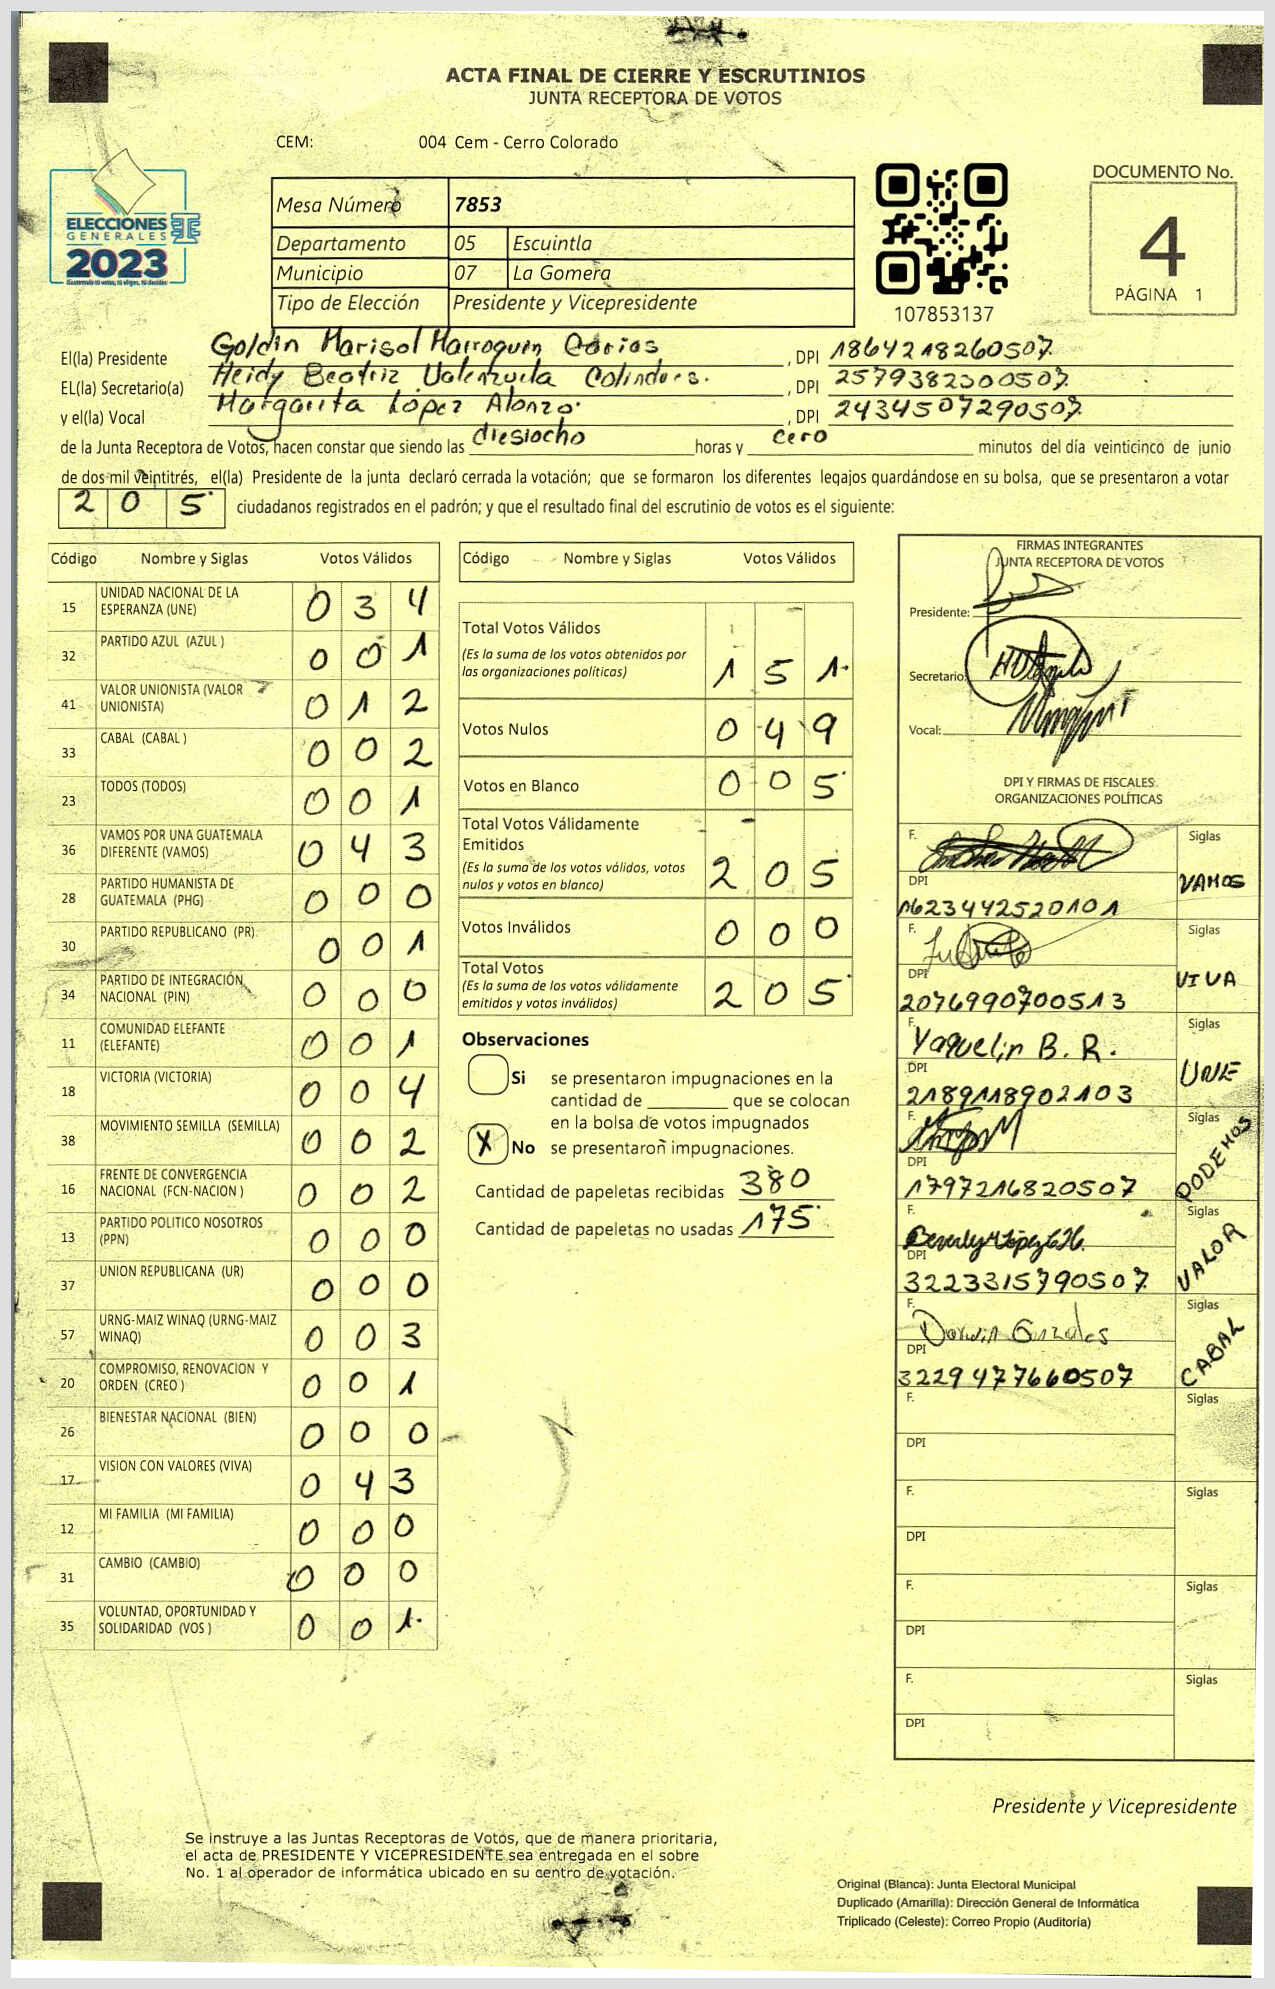 ACTA FINAL DE CIERRE Y ESCRUTINIOS
JUNTA RECEPTORA DE VOTOS
CEM: 004 Cem - Cerro Colorado
DOCUMENTO No.
4
PÁGINA 1
ELECCIONES
GENERALES
2023
Mesa Número 7853
Departamento 05 Escuintla
Municipio 07 La Gomera
Tipo de Elección Presidente y Vicepresidente
107853137
El(la) Presidente Goldin Marisol Marroquin Carias, DPI 1864218260507
EL(la) Secretario(a) Heidy Beatriz Valenzuela Colindres., DPI 2579382300507
y el(la) Vocal Margarita López Alonzo, DPI 2434507290507
de la Junta Receptora de Votos, hacen constar que siendo las diesiocho horas y cero minutos del día veinticinco de junio
de dos mil veintitrés, el(la) Presidente de la junta declaró cerrada la votación; que se formaron los diferentes legajos guardándose en su bolsa, que se presentaron a votar
205 ciudadanos registrados en el padrón; y que el resultado final del escrutinio de votos es el siguiente:
Código Nombre y Siglas Votos Válidos
15 UNIDAD NACIONAL DE LA ESPERANZA (UNE) 0 3 4
32 PARTIDO AZUL (AZUL ) 0 0 1
41 VALOR UNIONISTA (VALOR UNIONISTA) 0 1 2
33 CABAL (CABAL ) 0 0 2
23 TODOS (TODOS) 0 0 1
36 VAMOS POR UNA GUATEMALA DIFERENTE (VAMOS) 0 4 3
28 PARTIDO HUMANISTA DE GUATEMALA (PHG) 0 0 0
30 PARTIDO REPUBLICANO (PR) 0 0 1
34 PARTIDO DE INTEGRACIÓN NACIONAL (PIN) 0 0 0
11 COMUNIDAD ELEFANTE (ELEFANTE) 0 0 1
18 VICTORIA (VICTORIA) 0 0 4
38 MOVIMIENTO SEMILLA (SEMILLA) 0 0 2
16 FRENTE DE CONVERGENCIA NACIONAL (FCN-NACION ) 0 0 2
13 PARTIDO POLITICO NOSOTROS (PPN) 0 0 0
37 UNION REPUBLICANA (UR) 0 0 0
57 URNG-MAIZ WINAQ (URNG-MAIZ WINAQ) 0 0 3
20 COMPROMISO, RENOVACION Y ORDEN (CREO ) 0 0 1
26 BIENESTAR NACIONAL (BIEN) 0 0 0
17 VISION CON VALORES (VIVA) 0 4 3
12 MI FAMILIA (MI FAMILIA) 0 0 0
31 CAMBIO (CAMBIO) 0 0 0
35 VOLUNTAD, OPORTUNIDAD Y SOLIDARIDAD (VOS ) 0 0 1
Código Nombre y Siglas Votos Válidos
Total Votos Válidos
(Es la suma de los votos obtenidos por
las organizaciones políticas) 1 5 1
Votos Nulos 0 4 9
Votos en Blanco 0 0 5
Total Votos Válidamente
Emitidos
(Es la suma de los votos válidos, votos
nulos y votos en blanco) 2 0 5
Votos Inválidos 0 0 0
Total Votos
(Es la suma de los votos válidamente
emitidos y votos inválidos) 2 0 5
Observaciones
Si se presentaron impugnaciones en la
cantidad de ________ que se colocan
en la bolsa de votos impugnados
X No se presentaron impugnaciones.
Cantidad de papeletas recibidas 380
Cantidad de papeletas no usadas 175
FIRMAS INTEGRANTES
JUNTA RECEPTORA DE VOTOS
Presidente:
Secretario:
Vocal:
DPI Y FIRMAS DE FISCALES
ORGANIZACIONES POLÍTICAS
F. Siglas
DPI VAMOS
1623442520101
F. Siglas
DPI VIVA
2076990700513
F. Yaquelin B. R. Siglas
DPI UNE
2189118902103
F. Siglas
DPI PODEMOS
1797216820507
F. Siglas
DPI VALOR
3223315790507
F. Darwin Gonzales Siglas
DPI CABAL
3229477660507
F. Siglas
DPI
F. Siglas
DPI
F. Siglas
DPI
F. Siglas
DPI
Presidente y Vicepresidente
Se instruye a las Juntas Receptoras de Votos, que de manera prioritaria,
el acta de PRESIDENTE Y VICEPRESIDENTE sea entregada en el sobre
No. 1 al operador de informática ubicado en su centro de votación.
Original (Blanca): Junta Electoral Municipal
Duplicado (Amarilla): Dirección General de Informática
Triplicado (Celeste): Correo Propio (Auditoría)